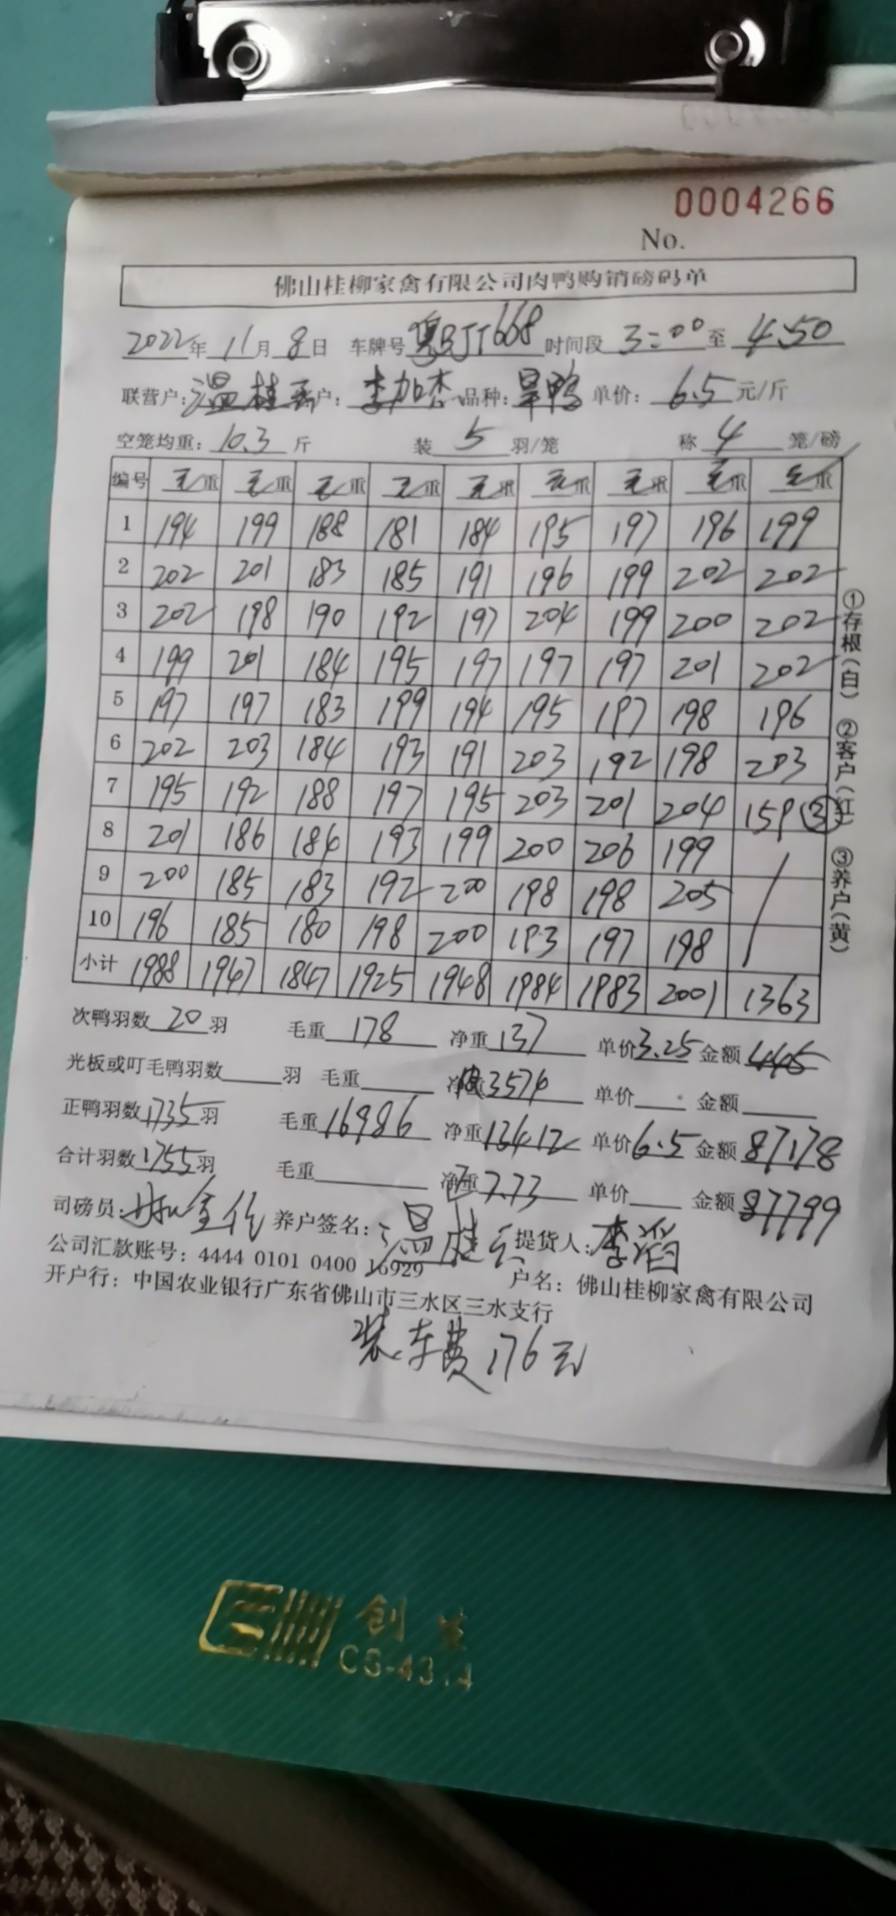 0004266
No.
佛山桂柳家禽有限公司肉鸭购销磅码单
2022年 11月 8日 车牌号 粤 JT668 时间段 3:00 至 4.50
联营户: 温桂 户: 李加杰 品种: 旱鸭 单价: 6.5 元/斤
空笼均重: 10.3 斤 装 5 羽/笼 称 4 笼/磅
编号 毛重 毛重 毛重 毛重 毛重 毛重 毛重 毛重 毛重
1 194 199 188 181 184 195 197 196 199
2 202 201 183 185 191 196 199 202 202
3 202 198 190 192 197 204 199 200 202
4 199 201 184 195 197 197 197 201 202
5 197 197 183 199 194 195 197 198 196
6 202 203 184 193 191 203 192 198 203
7 195 192 188 197 195 203 201 204 159 ③
8 201 186 184 193 199 200 206 199
9 200 185 183 192 200 198 198 205
10 196 185 180 198 200 193 197 198
小计 1988 1947 1847 1925 1948 1984 1983 2001 1363
①存根(白) ②客户(红) ③养户(黄)
次鸭羽数 20 羽 毛重 178 净重 137 单价 3.25 金额 445
光板或叮毛鸭羽数 羽 毛重 净重 3574 单价 金额
正鸭羽数 1735 羽 毛重 16986 净重 13412 单价 6.5 金额 87178
合计羽数 1755 羽 毛重 净重 7.73 单价 金额 87799
司磅员: 养户签名: 温桂 提货人: 李滔
公司汇款账号: 4444 0101 0400 16929 户名: 佛山桂柳家禽有限公司
开户行: 中国农业银行广东省佛山市三水区三水支行
装车费 176元
创
CS-4314